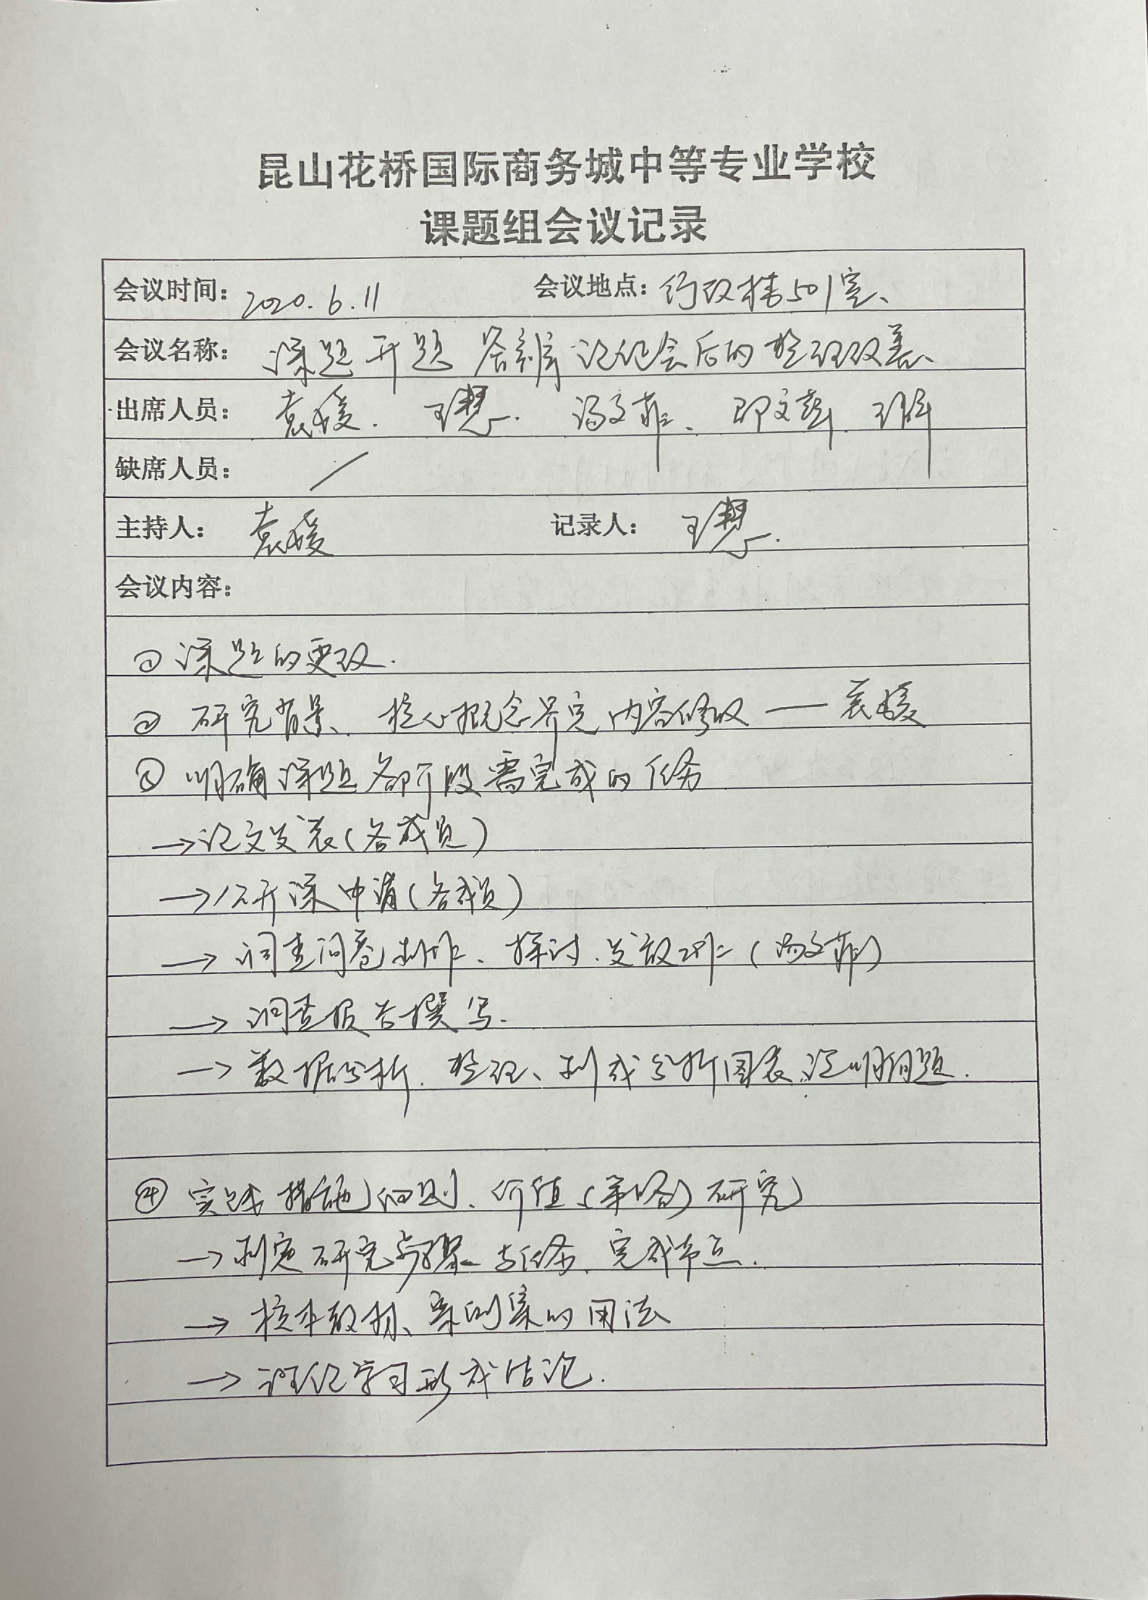 昆山花桥国际商务城中等专业学校
课题组会议记录
会议时间: 2020.6.11 会议地点: 行政楼501室、
会议名称: 课题开题答辩论证会后的整理改善、
出席人员: 袁媛. 王慧. 冯文菲、 文 王
缺席人员: /
主持人: 袁媛 记录人: 王慧.
会议内容:
① 课题的更改.
② 研究背景、核心概念界定内容修改 — 袁媛
③ 明确课题各阶段需完成的任务
→论文发表(各成员)
→公开课申请(各成员)
→ 调查问卷制作、探讨.发放工作 (冯文菲)
→ 调查报告撰写.
→ 数据分析.整理、制成分析图表,说明问题.
④ 实践措施细则、价值(策略)研究
→制定研究步骤与任务.完成节点.
→ 校本教材、案例集的用法
→ 理论学习形成结论.